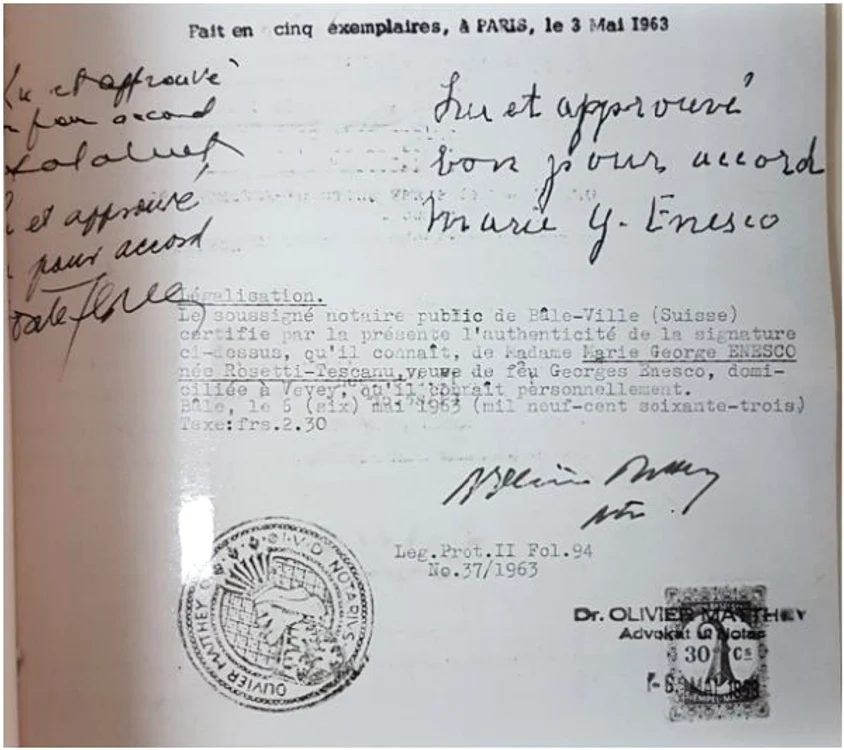 Fait en cinq exemplaires, à PARIS, le 3 Mai 1963
Lu et approuvé
pour accord
et approuvé
pour accord
Lu et approuvé
bon pour accord
Marie G. Enesco
Légalisation.
Le soussigné notaire public de Bâle-Ville (Suisse)
certifie par la présente l'authenticité de la signature
ci-dessus, qu'il connaît, de Madame Marie George ENESCO
née Rosetti-Tescanu, veuve de feu Georges Enesco, domi-
ciliée à Vevey, qu'il connaît personnellement.
Bâle, le 6 (six) mai 1963 (mil neuf-cent soixante-trois)
Taxe:frs.2.30
Leg.Prot.II Fol.94
No.37/1963
OLIVIER MATTHEY I.V.D NOTARIUS
Dr. OLIVIER MATTHEY
Advokat u Notar
30 Cs